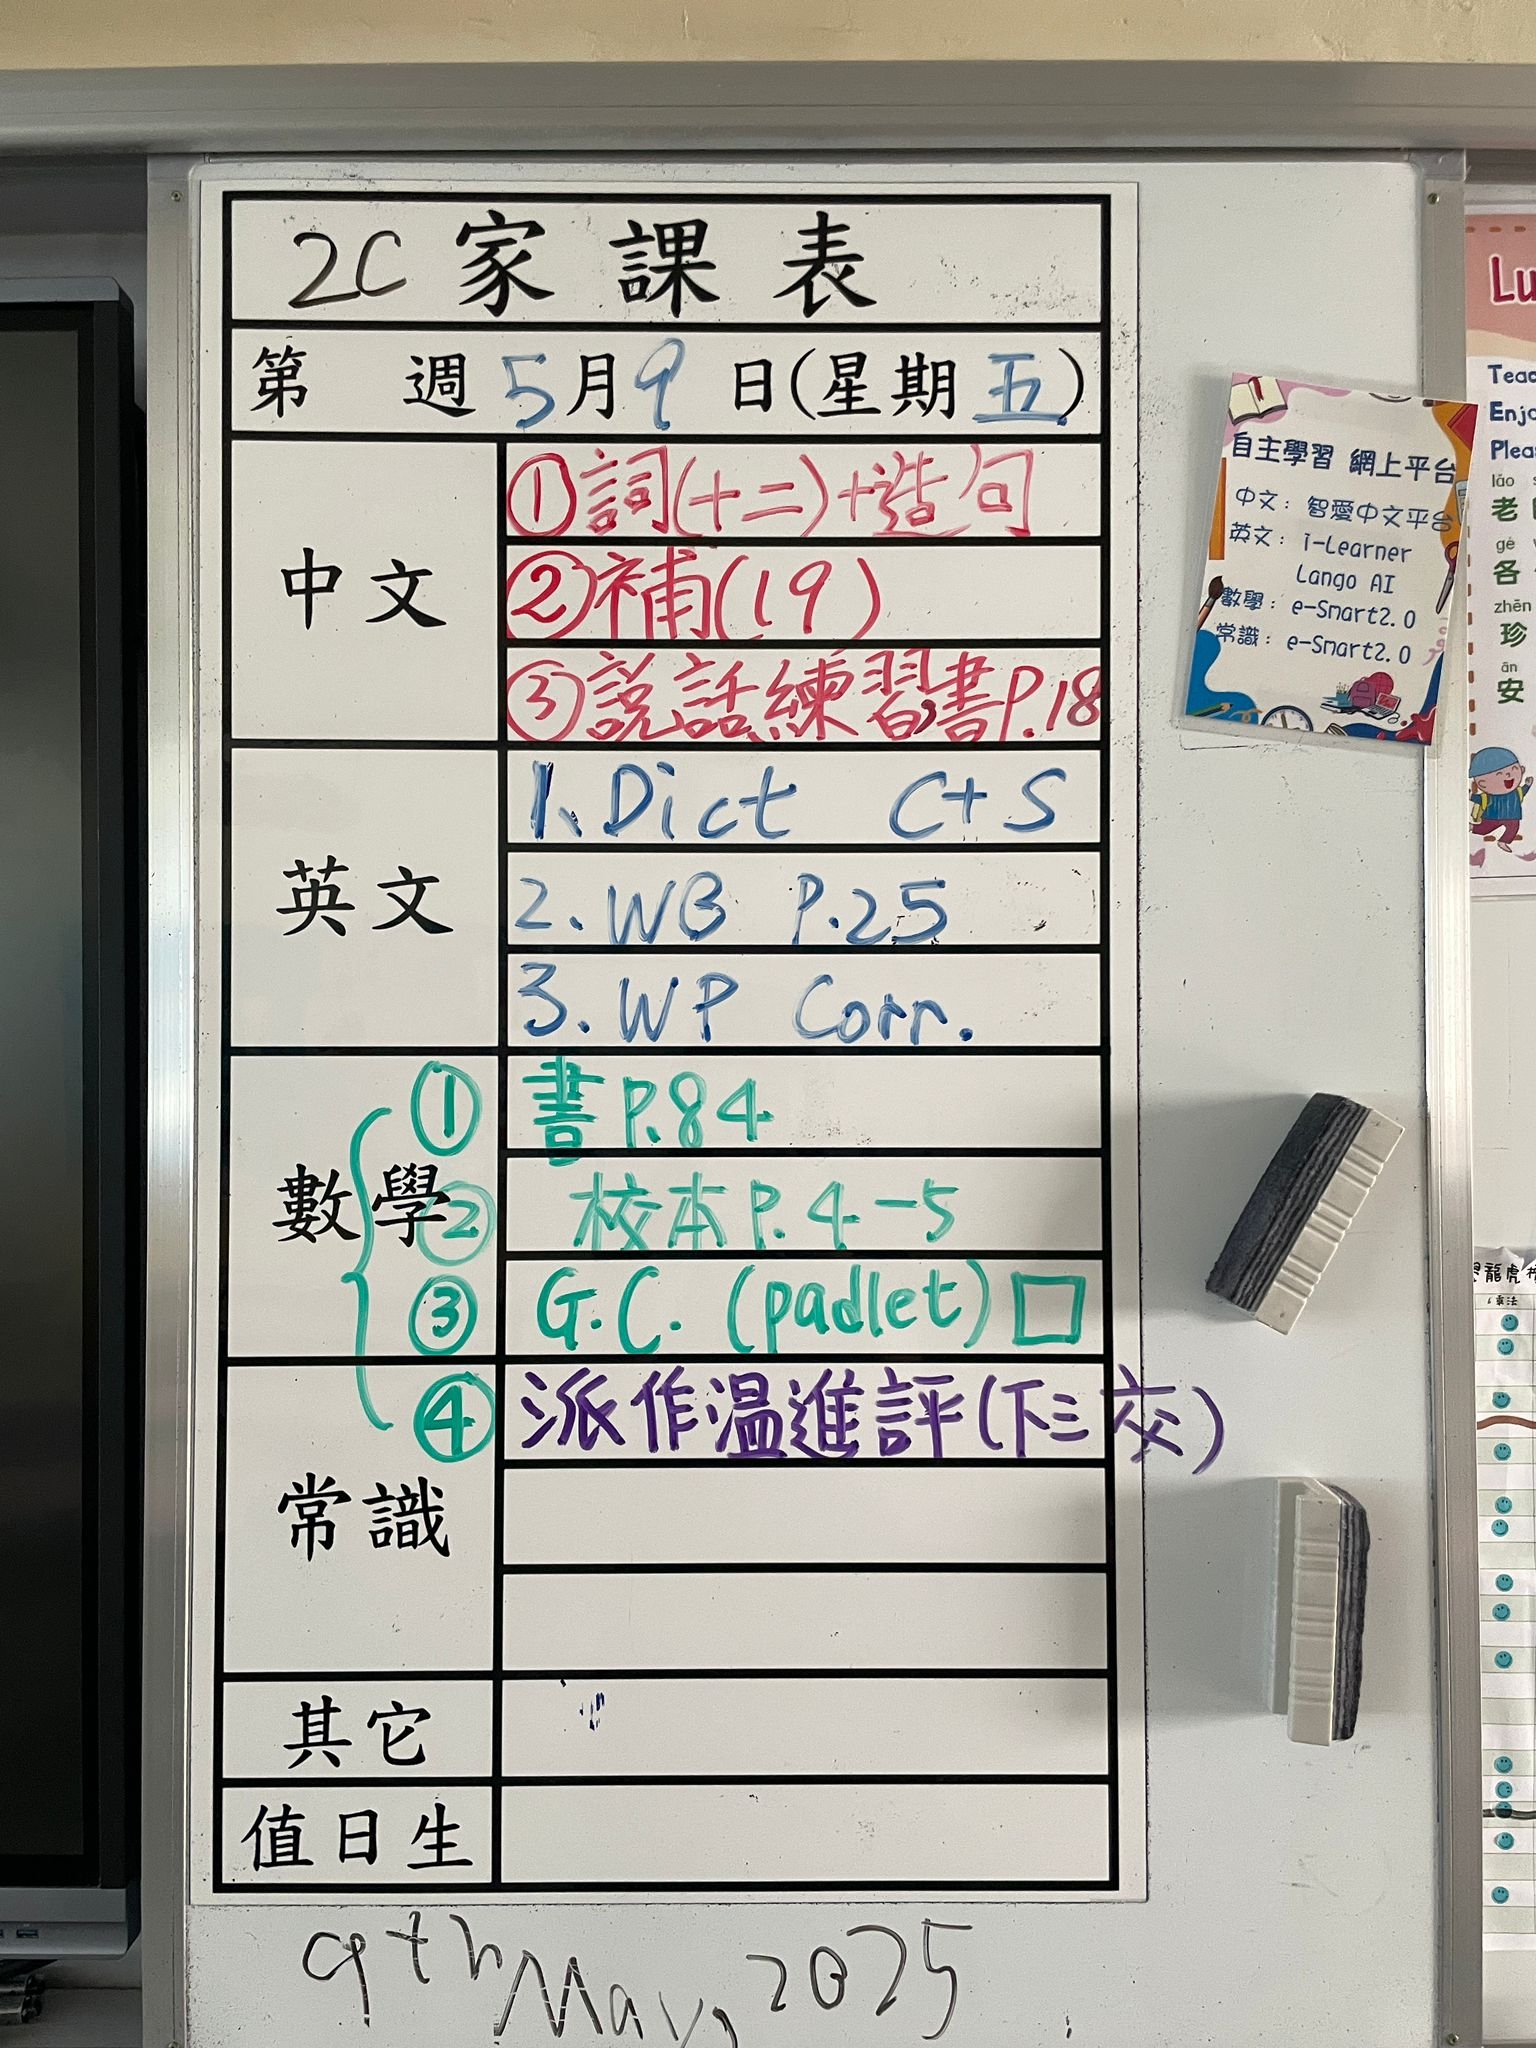 2C 家課表
第 週 5月9日(星期五)
中文
①詞(十二)+造句
②補(19)
③說話練習書P.18
英文
1. Dict C+S
2. WB P.25
3. WP Corr.
數學
① 書P.84
② 校本P.4-5
③ G.C. (padlet) □
④ 派作溫進評(下三交)
常識
其它
值日生
9th May, 2025
自主學習 網上平台
中文: 智愛中文平台
英文: i-Learner
Lango AI
數學: e-Smart2.0
常識: e-Smart2.0
Lu
Teac
Enjo
Plea
lǎo
老
gè
各
zhēn
珍
ān
安
龍虎